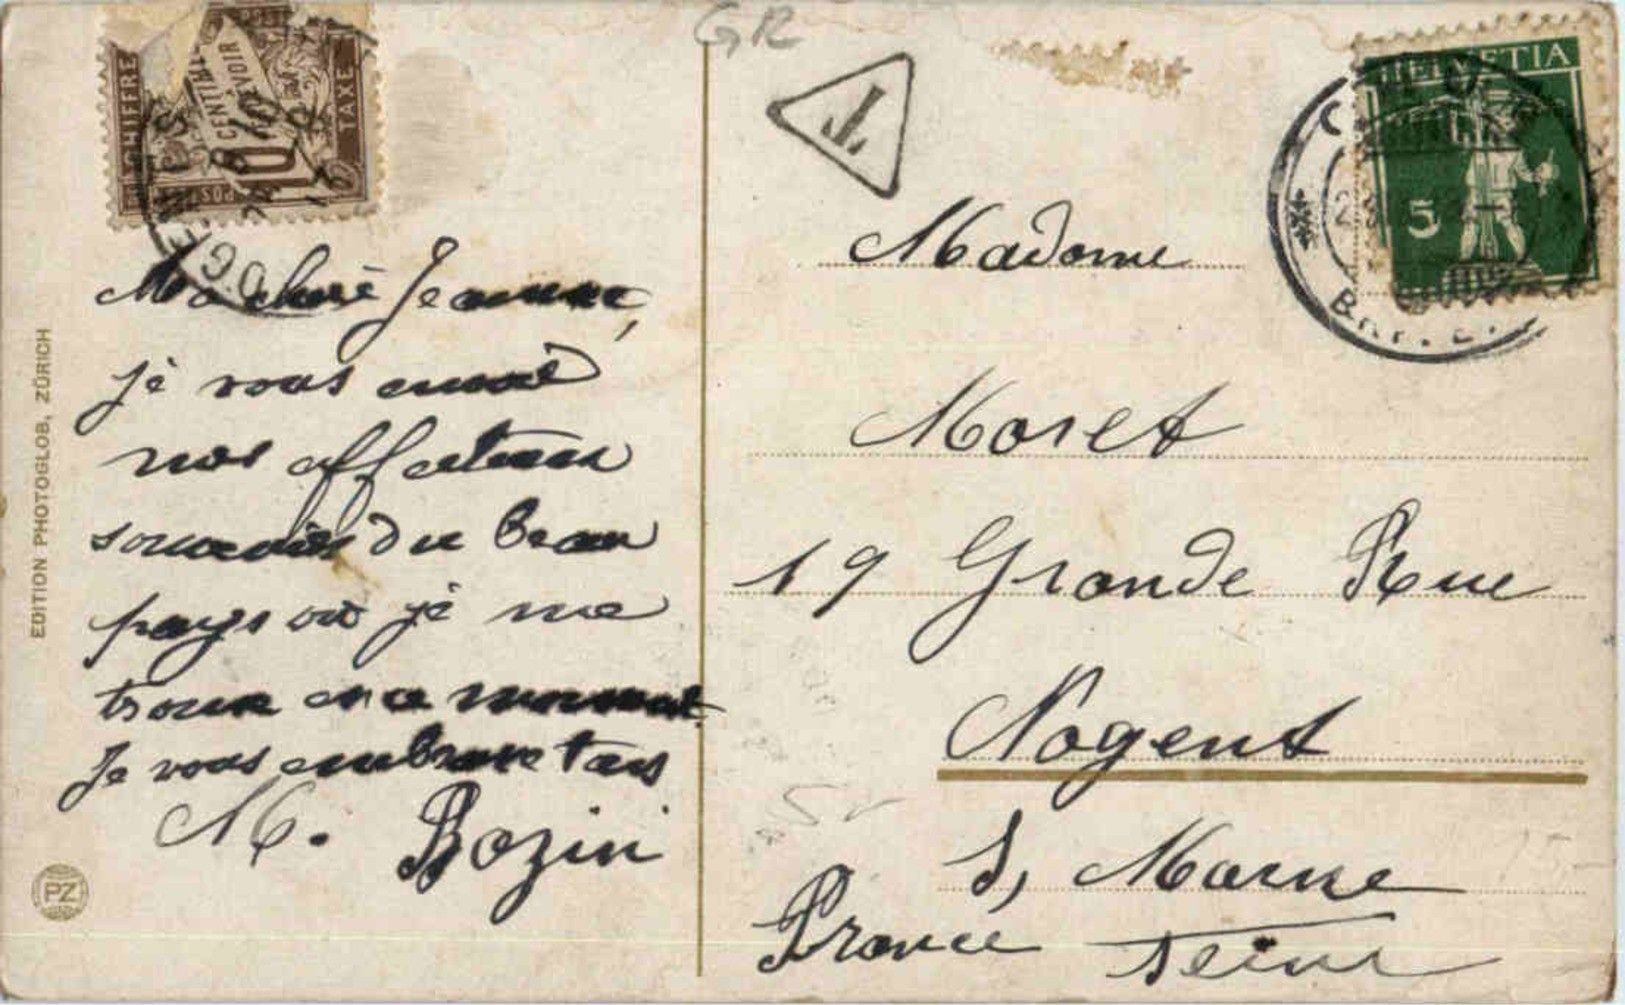 GR
T
À CHIFFRE
CENTIMES
DEVOIR
TAXE
10
HELVETIA
5
Ma cherè Jeanne,
jè vous envoiè
nos affections
souvenirs du beau
pays où jè me
trouve en ce moment
Je vous embrasse tous
M. Bozin
Madame
Moret
19 Grande Rue
Nogent
S, Marne
France Seine
EDITION PHOTOGLOB, ZÜRICH
PZ